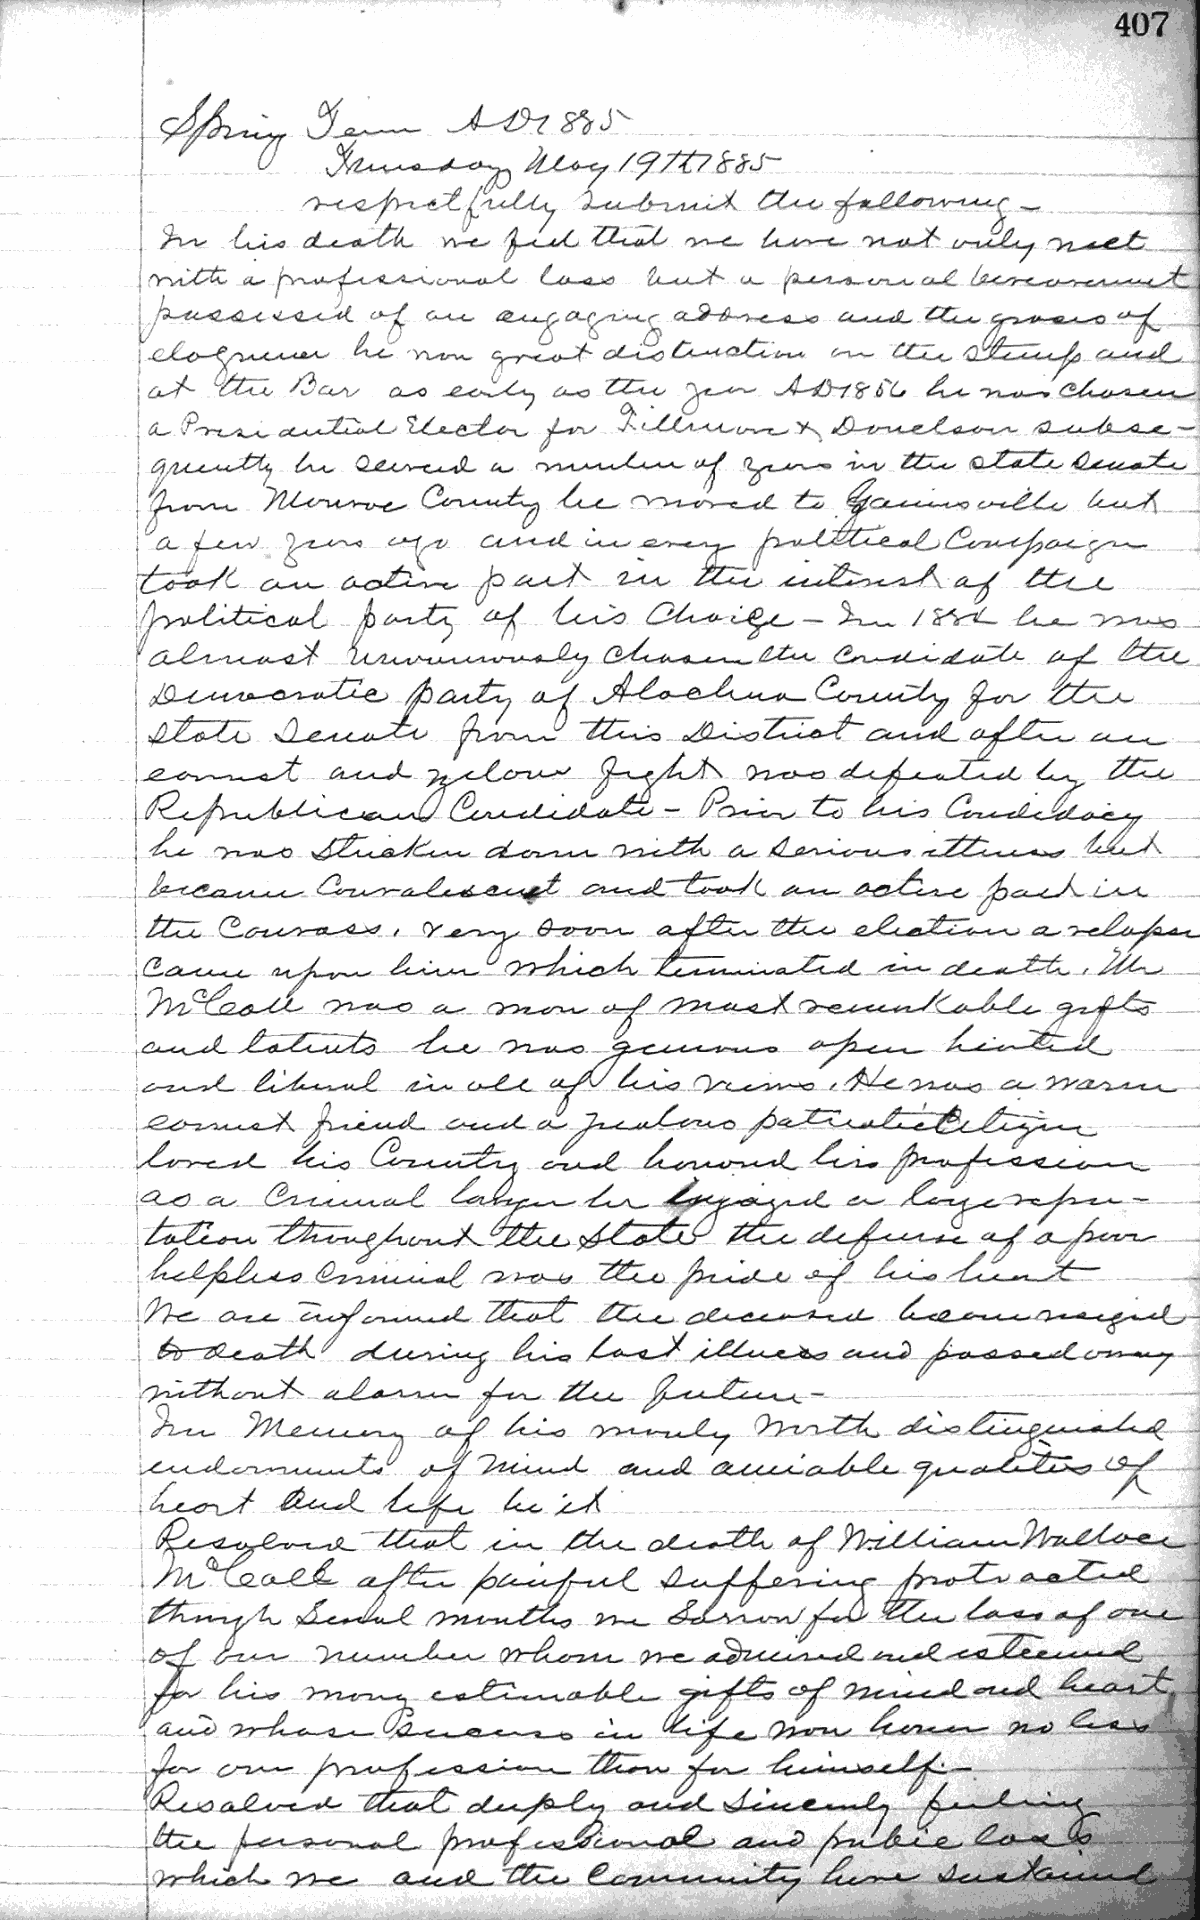 407
Spring Term AD 1885
Thursday May 19th 1885
respectfully submit the following –
In his death we feel that we have not only met
with a professional loss but a personal bereavement
possessed of an engaging address and the graces of
eloquence he won great distinction on the stump and
at the Bar as early as the year AD 1856 he was chosen
a Presidential Elector for Fillmore & Donelson subse-
quently he served a number of years in the state senate
from Monroe County he moved to Gainsville but
a few years ago and in every political Campaign
took an active part in the interest of the
political party of his Choice – In 1884 he was
almost unanimously chosen the candidate of the
Democratic party of Alachua County for the
state Senate from this District and after an
earnest and zelous fight was defeated by the
Republican Candidate – Prior to his Candidacy
he was stricken down with a serious illness but
became Convalescent and took an active part in
the Canvass. very soon after the election a relapse
came upon him which terminated in death. Mr
McCall was a man of most remarkable gifts
and talents he was generous open hearted
and liberal in all of his views. He was a warm
earnest friend and a zealous patriotic Citizen
loved his Country and honored his profession
as a Criminal lawyer he enjoyed a large repu-
tation throughout the State the defense of a poor
helpless criminal was the pride of his heart
We are informed that the deceased became resigned
to death during his last illness and passed away
without alarm for the future –
In Memory of his manly Worth distinguished
endowments of Mind and amiable qualities of
heart and life be it
Resolved that in the death of William Wallace
McCall after painful suffering protracted
though Several months we Sorrow for the loss of one
of our number whom we admired and esteemed
for his many estimable gifts of mind and heart,
and whose success in life won honor no less
for our profession than for himself –
Resolved that deeply and sincerely feeling
the personal professional and public loss
which we and the Community have sustained